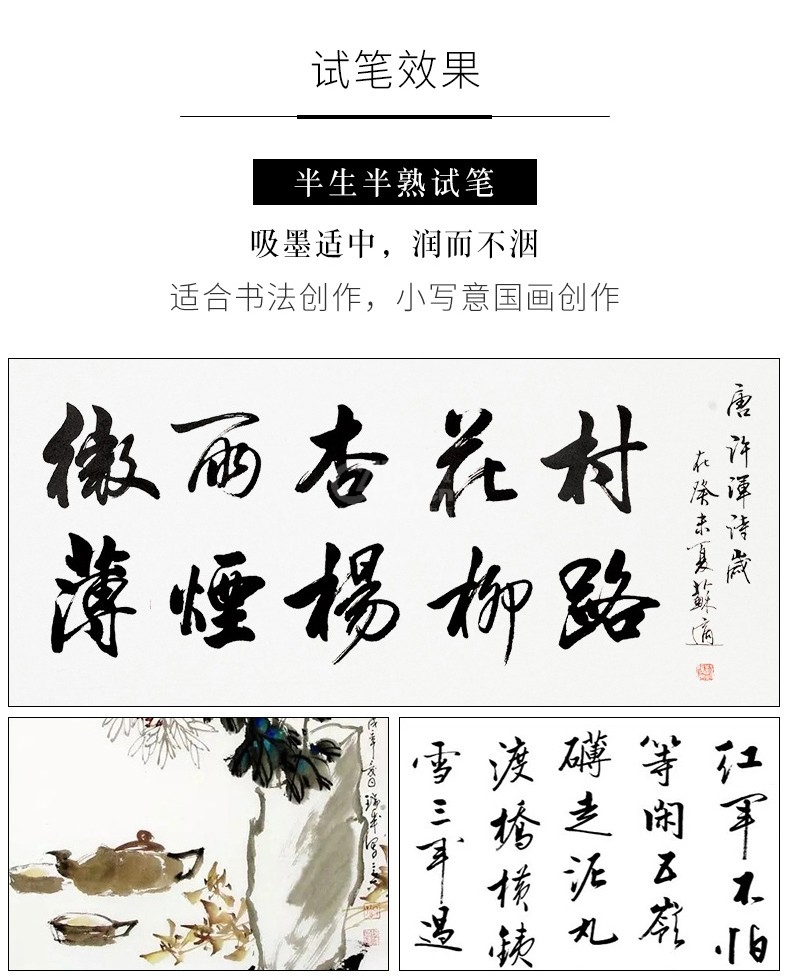 试笔效果
半生半熟试笔
吸墨适中，润而不洇
适合书法创作，小写意国画创作
微雨杏花村
薄煙楊柳路
唐許渾詩歲
在癸未夏蘇適
红軍不怕
等閑五嶺
礴走泥丸
渡橋横鐵
雪三軍過